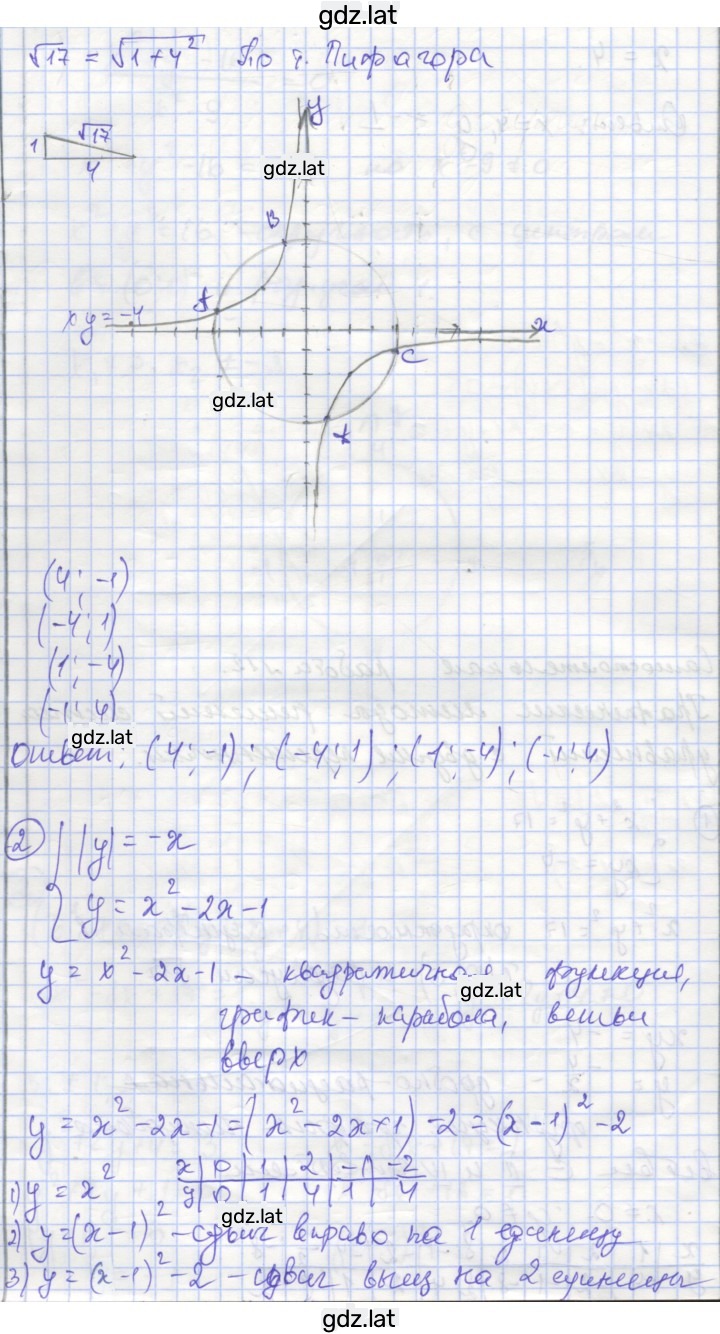 gdz.lat
√17 = √1+4² По т. Пифагора
y
1 √17
4
gdz.lat
B
A
xy=-4
x
C
gdz.lat
K
(4; -1)
(-4; 1)
(1; -4)
(-1; 4)
gdz.lat
Ответ: (4; -1); (-4; 1); (1; -4); (-1; 4)
2 { |y| = -x
y = x² - 2x - 1
y = x² - 2x - 1 - квадратичная функция,
gdz.lat
график - парабола, ветви
вверх
y = x² - 2x - 1 = (x² - 2x + 1) - 2 = (x - 1)² - 2
x | 0 | 1 | 2 | -1 | -2
1) y = x² y | 0 | 1 | 4 | 1 | 4
gdz.lat
2) y = (x - 1)² - сдвиг вправо на 1 единицу
3) y = (x - 1)² - 2 - сдвиг вниз на 2 единицы
gdz.lat